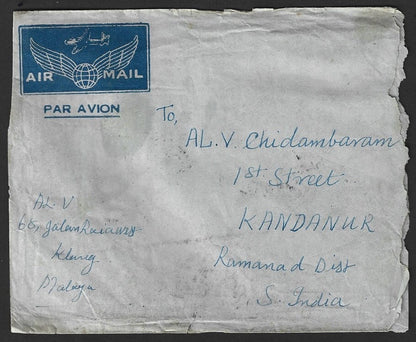 AIR MAIL
PAR AVION
To,
AL.V. Chidambaram
1st Street
KANDANUR
Ramanad Dist
S. India
AL. V
Klang
Malaya